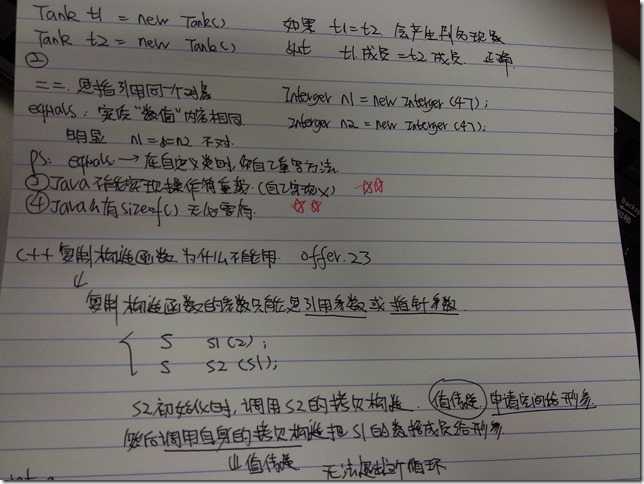 Tank t1 = new Tank() 如果 t1=t2 会产生别名现象
Tank t2 = new Tank() but t1.成员=t2.成员. 正确
②
==. 是指引用同一个对象 Interger n1 = new Interger (47);
equals: 实质"数值"内容相同 Interger n2 = new Interger (47);
明显 n1==n2 不对.
ps: equals → 在自定义类时,你自己重写方法.
③Java不能实现操作符重载.(自己定义) ☆☆
④Java没有sizeof() 无必要存. ☆☆
C++ 复制构造函数为什么不能用 offer.23
↓
复制构造函数的参数只能是引用参数或指针参数
S S1(2);
S S2(S1);
S2初始化时,调用S2的拷贝构造. 值传递 申请空间给形参
然后调用自身的拷贝构造把S1的数据成员给形参
⇓ 值传递 无法退出这个循环